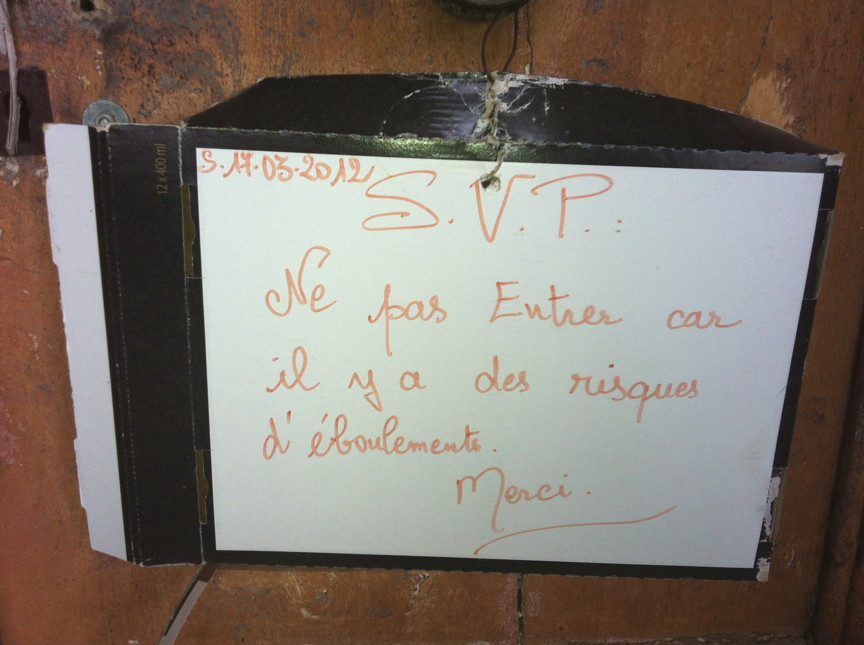 S.17.03.2012
S.V.P.:
Ne pas Entrer car
il y a des risques
d'éboulements.
Merci.
12 x 400 ml